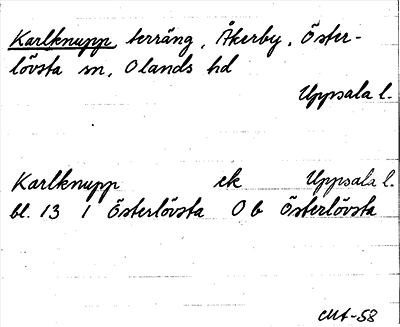 Karlknupp terräng, Åkerby, Öster-
lövsta sn, Olands hd
Uppsala l.
Karlknupp ek Uppsala l.
bl. 13 1 Österlövsta Ob Österlövsta
MA-58